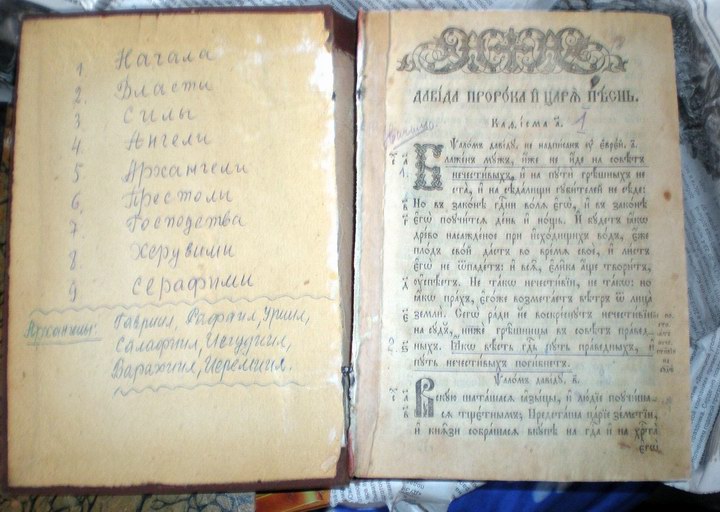 1 Начала
2. Власти
3 Силы
4 Ангели
5 Архангели
6. Престоли
7. Господства
8. Херувими
9 Серафими
Архангели: Гавриил, Рафаил, Уриил,
Салафиил, Иегудиил,
Варахиил, Иеремиил.
Давіда прорѡка и҆ царѧ̀ пѣснь.
Каѳісма а҃. 1
Ѱаломъ давіду, не надписанъ ѹ҆ еврєй, а҃.
Блаженъ мужъ, и҆же не и҆де на совѣтъ
нечестивыхъ, и҆ на пути грѣшныхъ не
ста, и҆ на сѣдалищи губителей не сѣде:
Но въ законѣ гдⷭ҇ни волѧ є҆гѡ̀, и҆ въ законѣ
є҆гѡ̀ поучитсѧ день и҆ нощь. И҆ будетъ ꙗ҆кѡ
древо насажденое при и҆сходищихъ водъ, є҆же
плодъ свой дастъ во времѧ свое, и҆ листъ
є҆гѡ̀ не ѿпадетъ: и҆ всѧ̑, є҆лика а҆ще творитъ,
ѹ҆спѣетъ. Не такѡ нечестивїи, не такѡ: но
ꙗ҆кѡ прахъ, є҆гоже возметаетъ вѣтръ ѿ лица
земли. Сегѡ̀ ради не воскреснутъ нечестивїи
на судъ, ниже грѣшницы въ совѣтъ правед-
ныхъ. Ꙗ҆кѡ вѣсть гдⷭ҇ь путь праведныхъ, и҆
путь нечестивыхъ погибнетъ.
Ѱаломъ давіду. в҃.
Вскую шаташасѧ ꙗ҆зыцы, и҆ людїе поучиша-
сѧ тщетнымъ; Предсташа царїе земстїи,
и҆ кнѧзи собрашасѧ вкупѣ на гдⷭ҇а и҆ на хрⷭ҇та
є҆гѡ̀